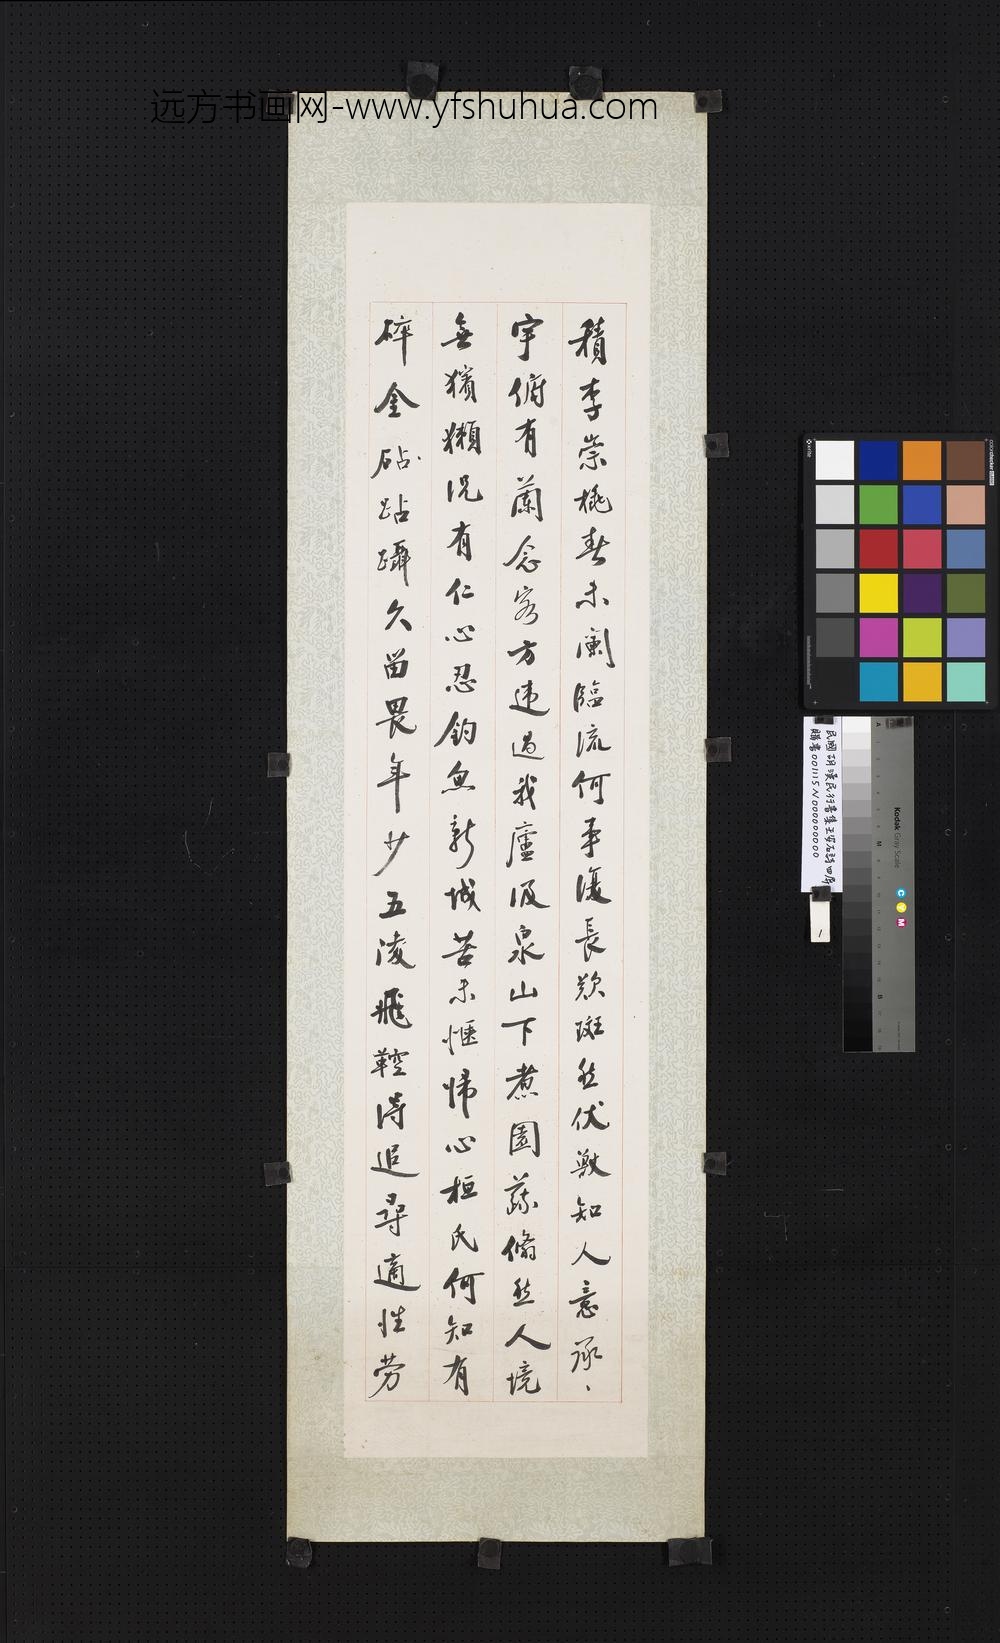 远方书画网-www.yfshuhua.com
積李崇桃春未闌臨流何事復長歎斑然伏獸知人意承、
宇俯有蘭念客方違過我廬汲泉山下煮園蔬翛然人境
無獱獺況有仁心忍釣魚新城苦未愜歸心桓氏何知有
碎金砧跕躡久留畏年少五凌飛鞚得追尋適性勞
民國胡漢民行書集王安石詩四屏
購書001115N000000000
1
Kodak Gray Scale
C
Y
M
A
M
B